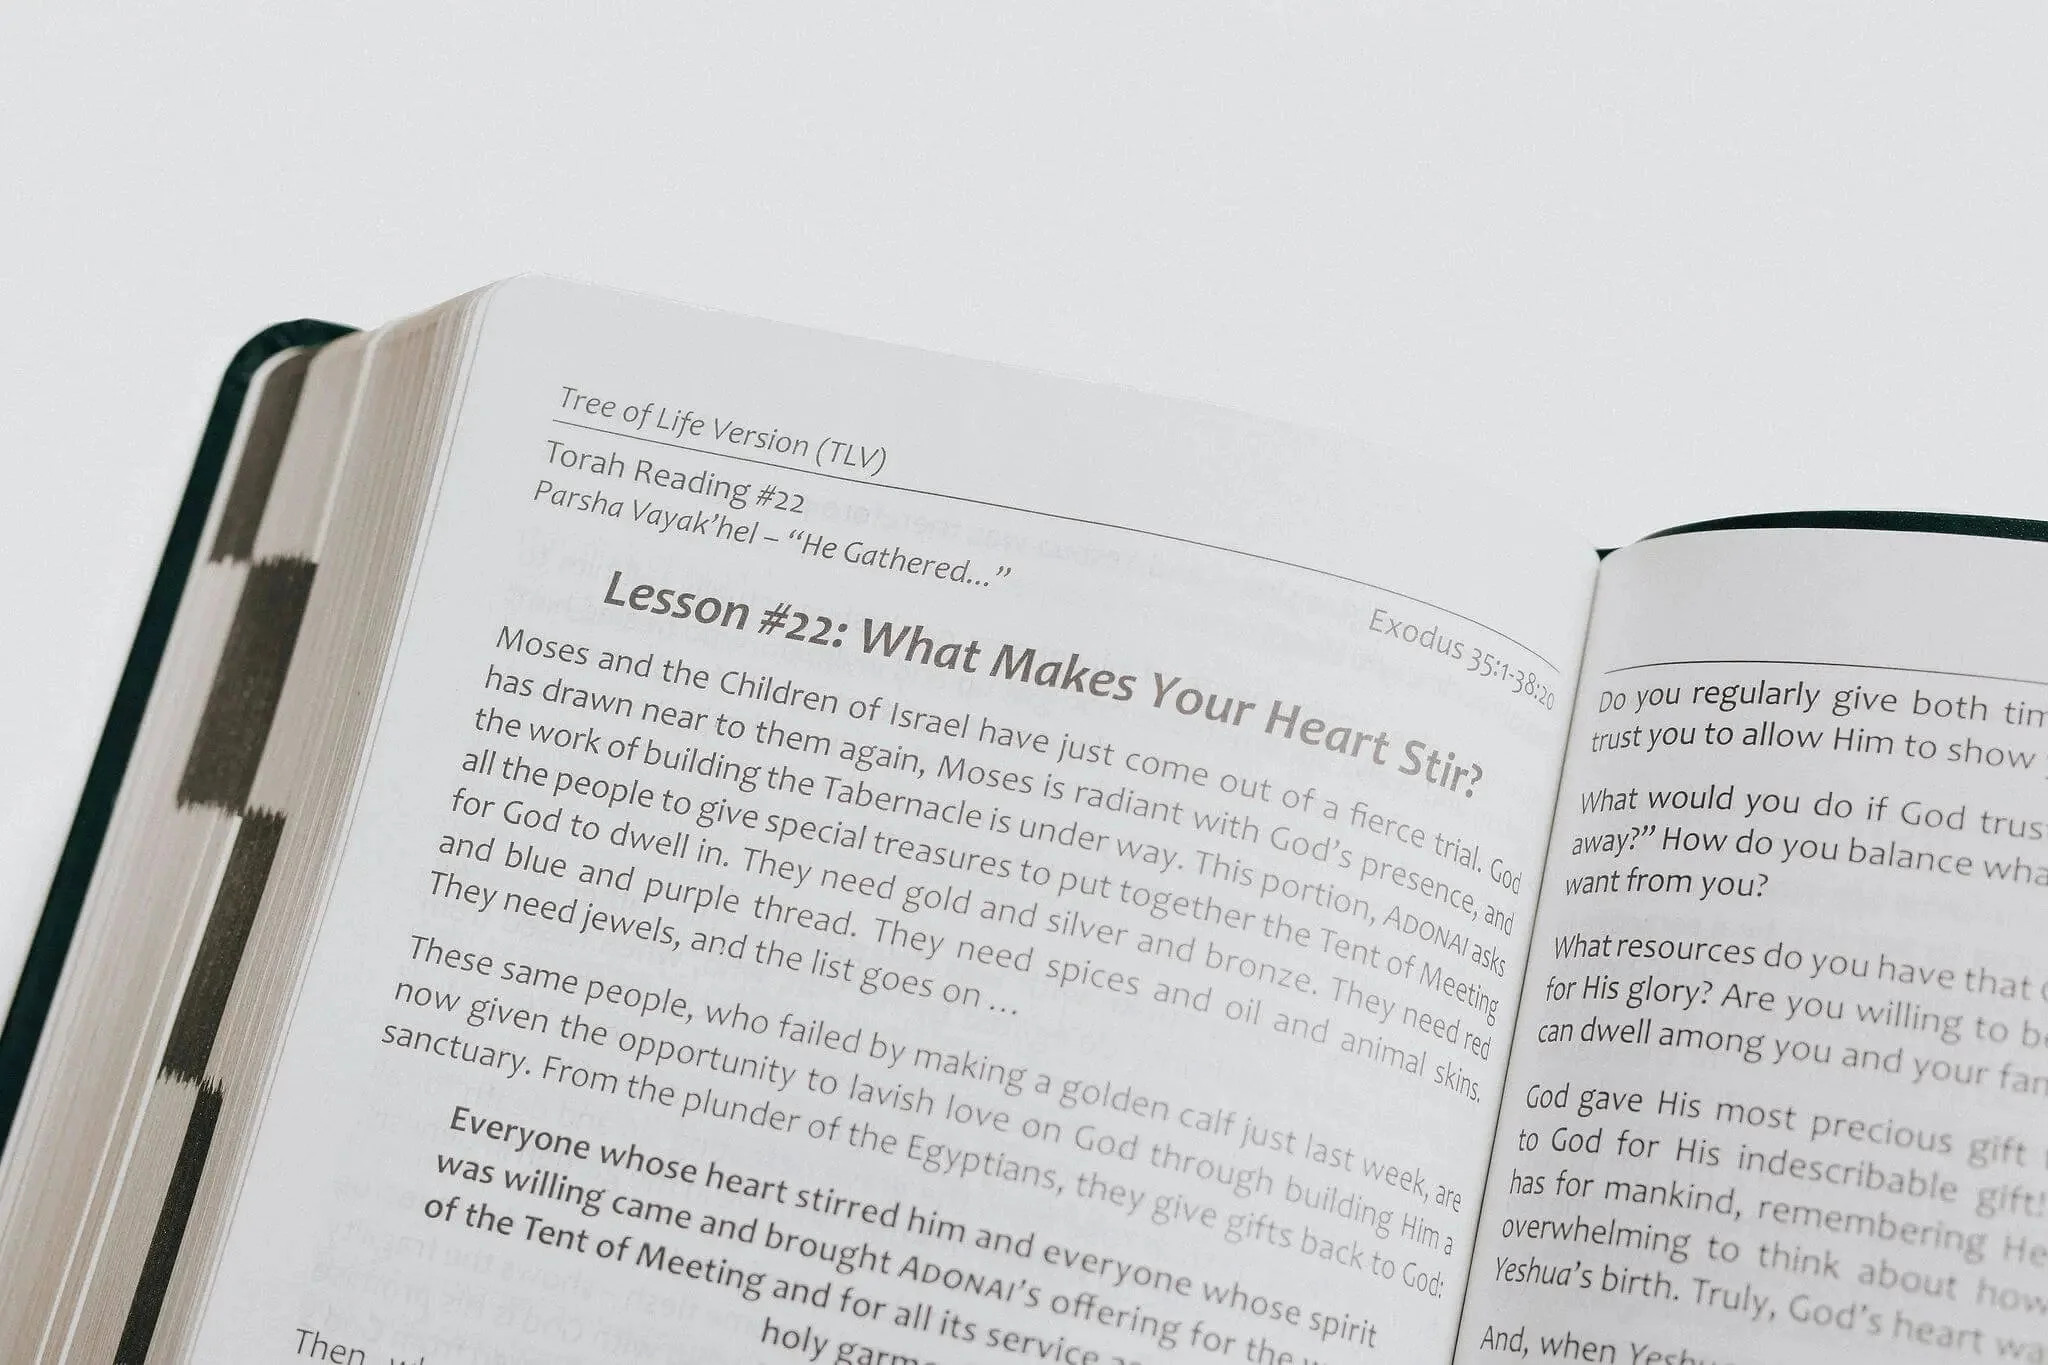 Tree of Life Version (TLV)
Exodus 35:1-38:20
Torah Reading #22
Parsha Vayak’hel – “He Gathered...”
Lesson #22: What Makes Your Heart Stir?
Moses and the Children of Israel have just come out of a fierce trial. God
has drawn near to them again, Moses is radiant with God’s presence, and
the work of building the Tabernacle is under way. This portion, ADONAI asks
all the people to give special treasures to put together the Tent of Meeting
for God to dwell in. They need gold and silver and bronze. They need red
and blue and purple thread. They need spices and oil and animal skins.
They need jewels, and the list goes on ...
These same people, who failed by making a golden calf just last week, are
now given the opportunity to lavish love on God through building Him a
sanctuary. From the plunder of the Egyptians, they give gifts back to God:
Everyone whose heart stirred him and everyone whose spirit
was willing came and brought ADONAI’s offering for the
of the Tent of Meeting and for all its service
holy
Then
Do you regularly give both
trust you to allow Him to show
What would you do if God
away?” How do you balance
want from you?
What resources do you have that
for His glory? Are you willing to
can dwell among you and your
God gave His most precious gift
to God for His indescribable gift!
has for mankind, remembering
overwhelming to think about
Yeshua’s birth. Truly, God’s heart
And, when